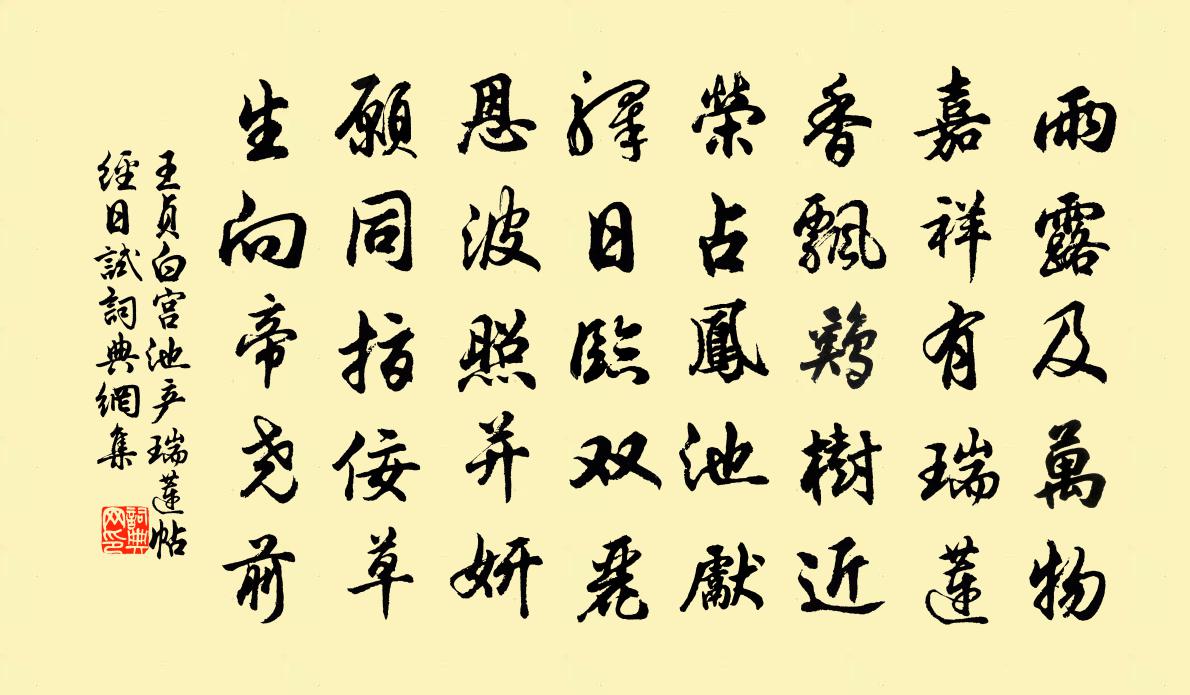 雨露及萬物
嘉祥有瑞蓮
香飄鷄樹近
榮占鳳池獻
驛日臨双麗
恩波照并妍
願同指佞草
生向帝尧前
王貞白宮池产瑞蓮帖
經日試詞典網集
詞典网印